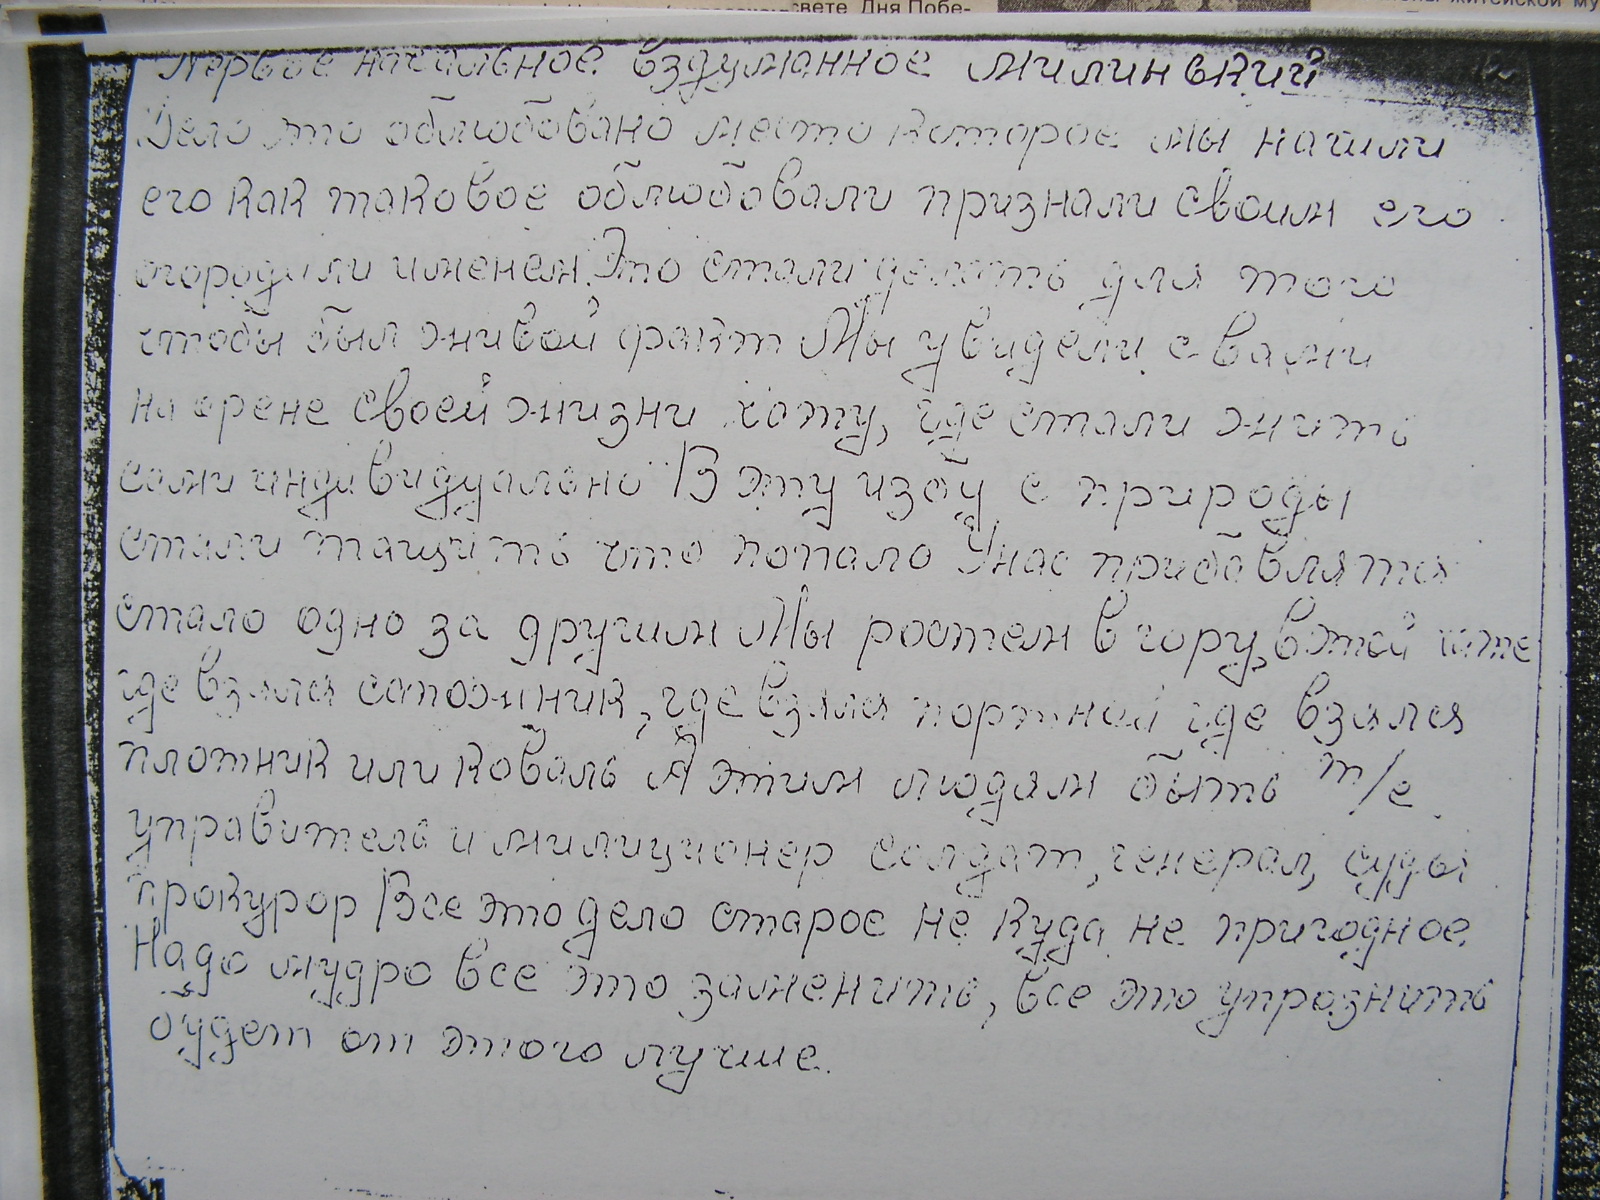 свете Дня Побе-
житейской му
Первое начальное вздуманное Милинвкий
Дело это облюбовано место которое мы начили
его как таковое облюбовали признали своим его
огородили именем. Это стали делать для того
чтобы был живой факт Мы увидели с вами
на арене своей жизни хату, где стали жить
сами индивидуально В эту избу с природы
стали тащить что попало У нас прибавлятся
стало одно за другим Мы ростем в гору, в этой хате
где взялся сапожник, где взялся портной где взялся
плотник или коваль А этим людям быть т/е
управитель и милиционер солдат, генерал, суды
прокурор Все это дело старое не куда не пригодное
Надо мудро все это заменить, все это упразнить
будет от этого лучше.